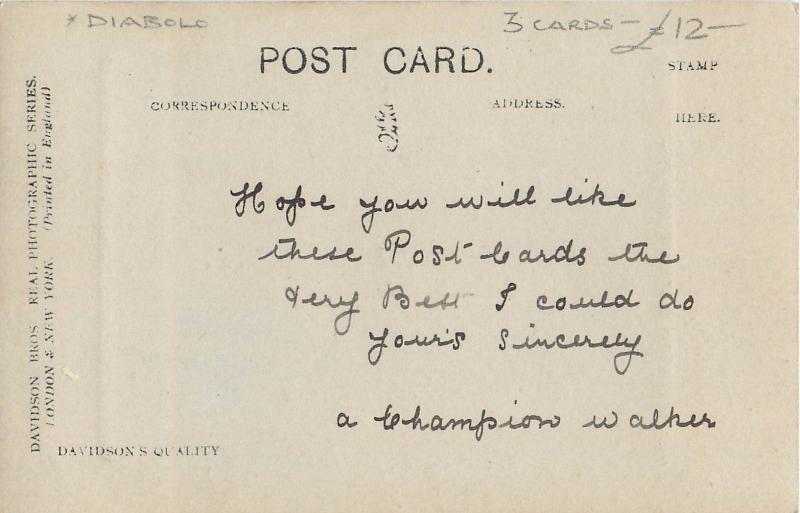 * DIABOLO
3 CARDS – £12 –
POST CARD.
STAMP
HERE.
CORRESPONDENCE
ADDRESS.
Hope you will like
these Post Cards the
Very Best I could do
your's Sincerely
a Champion walker
DAVIDSON BROS. REAL PHOTOGRAPHIC SERIES.
LONDON & NEW YORK. (Printed in England)
DAVIDSON'S QUALITY